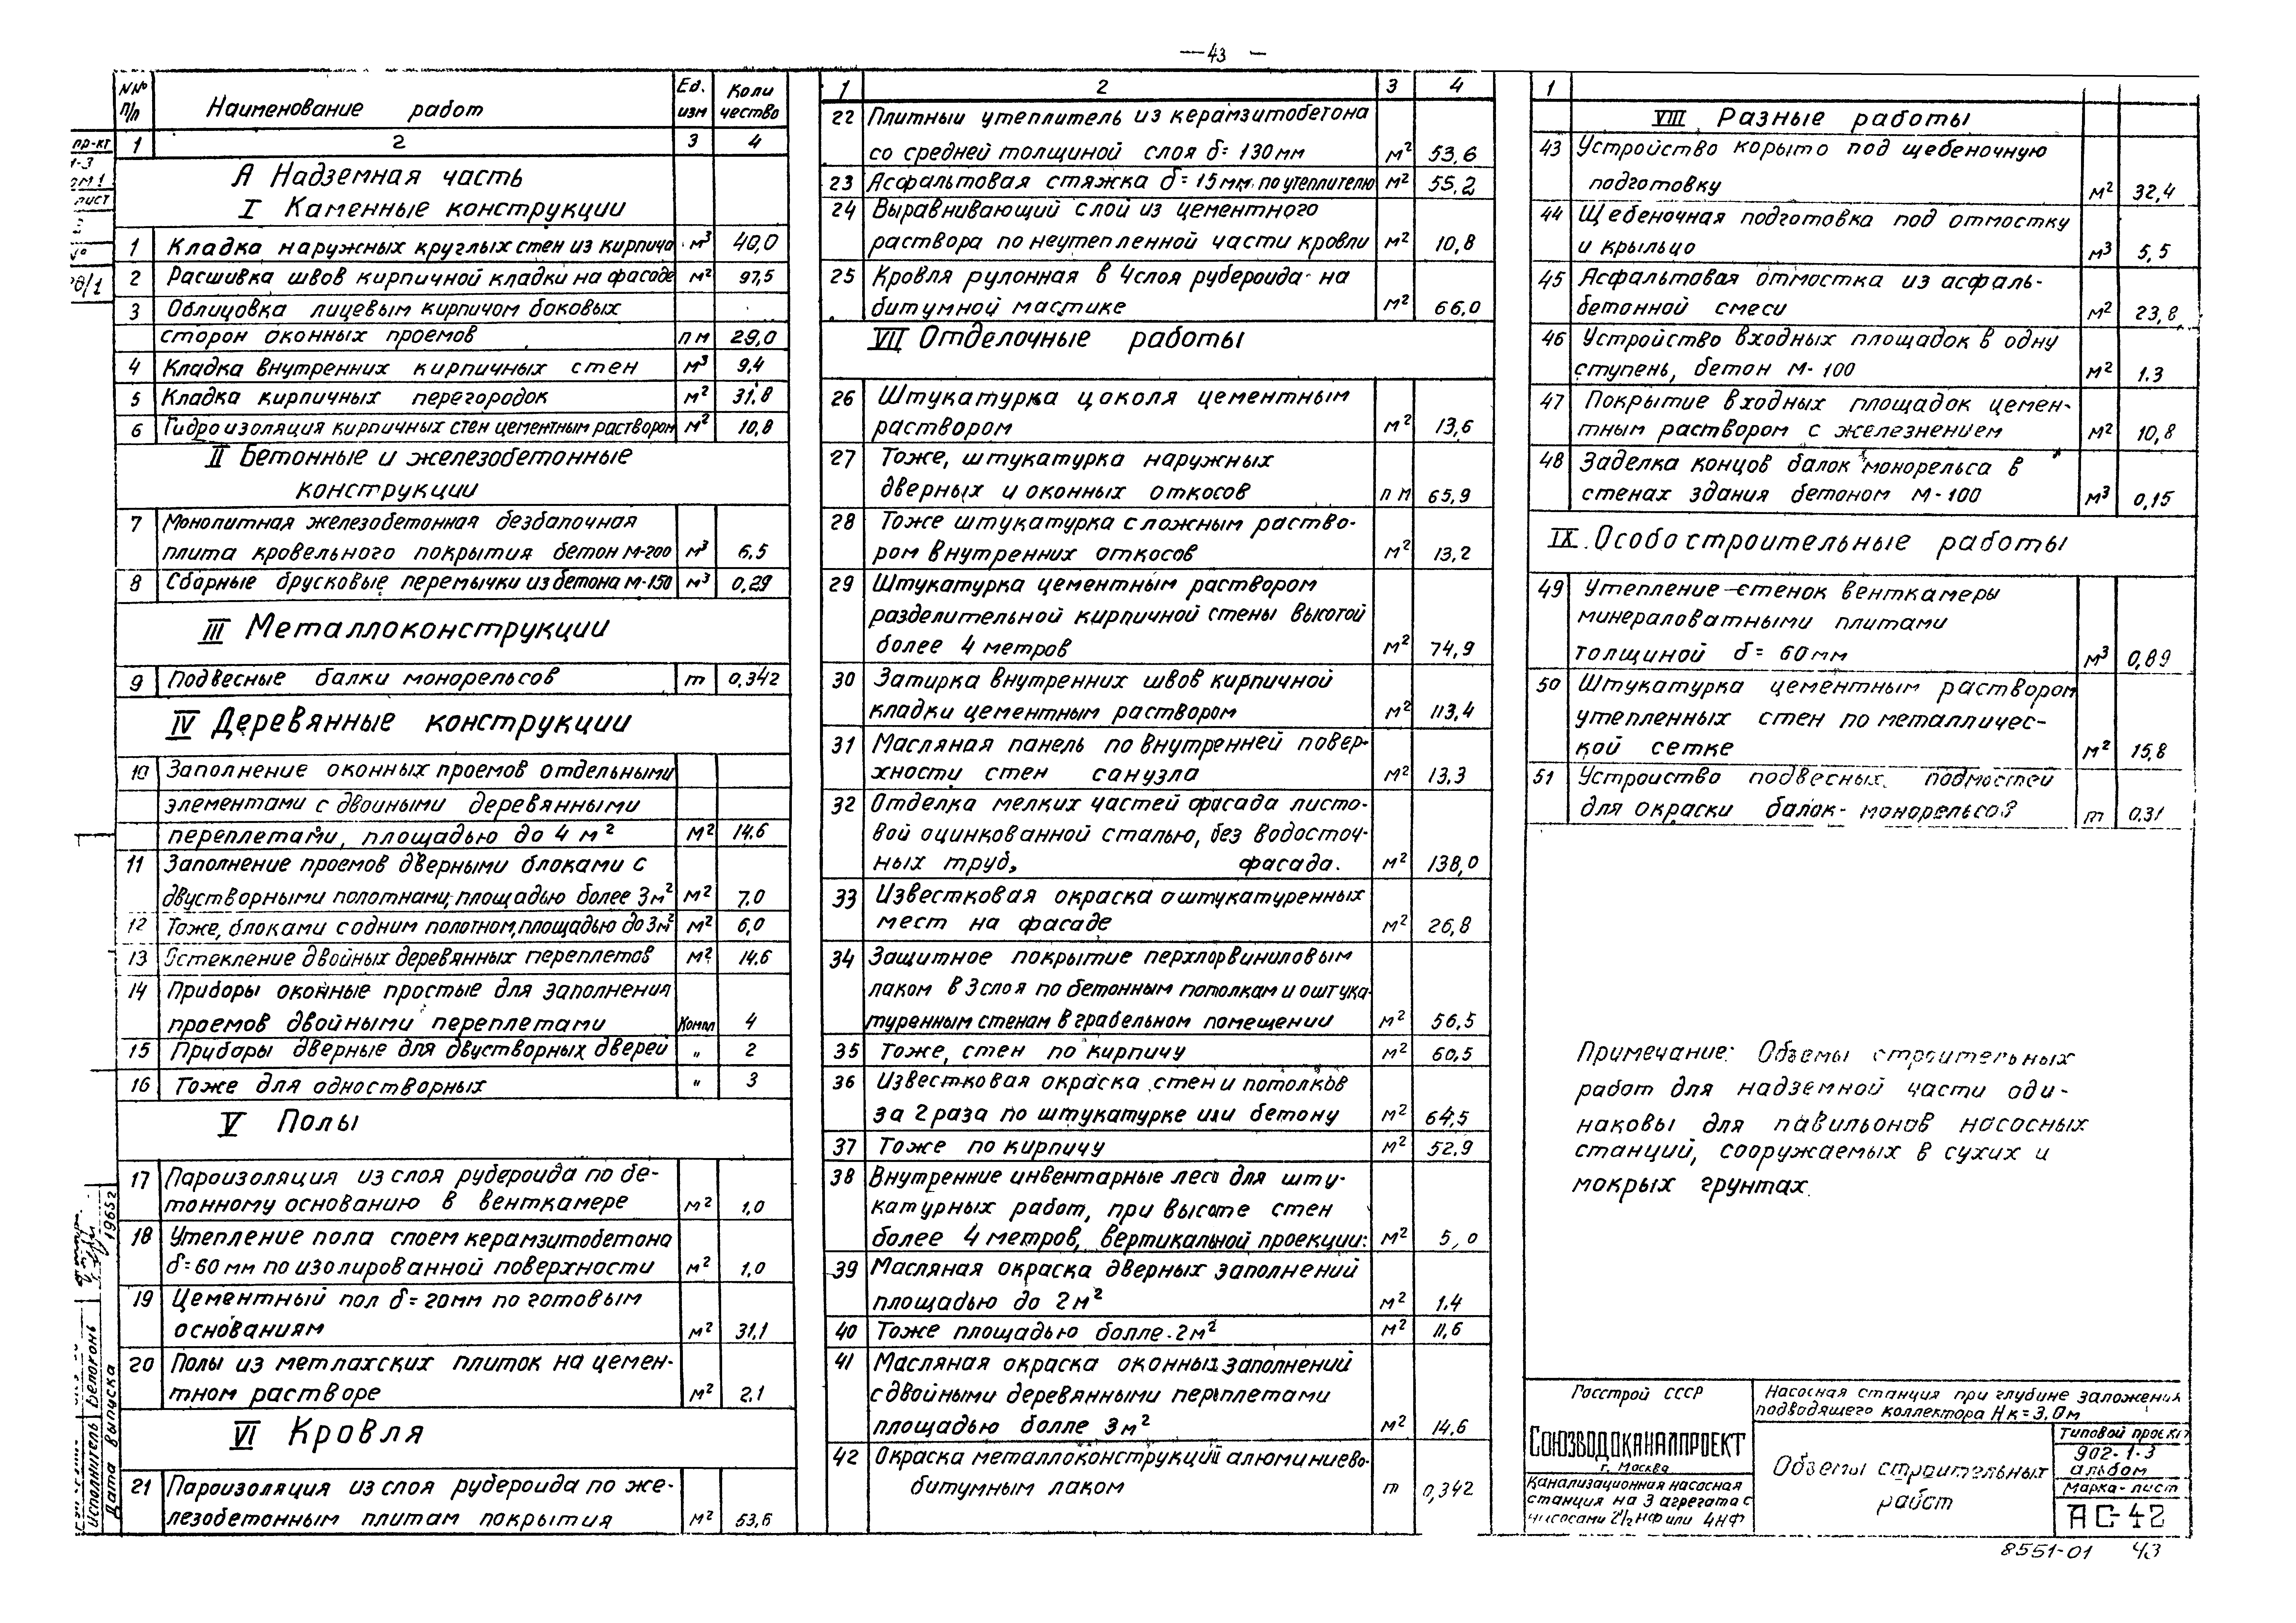 —43 —
NN№ п/п
Наименование работ
Ед. изм
Коли чество
1 2 3 4
А Надземная часть
I Каменные конструкции
1 Кладка наружных круглых стен из кирпича м³ 40,0
2 Расшивка швов кирпичной кладки на фасаде м² 97,5
3 Облицовка лицевым кирпичом боковых
сторон оконных проемов п м 29,0
4 Кладка внутренних кирпичных стен м³ 9,4
5 Кладка кирпичных перегородок м² 31,8
6 Гидроизоляция кирпичных стен цементным раствором м² 10,8
II Бетонные и железобетонные
конструкции
7 Монолитная железобетонная безбалочная
плита кровельного покрытия бетон М-200 м³ 6.5
8 Сборные брусковые перемычки из бетона М-150 м³ 0,29
III Металлоконструкции
9 Подвесные балки монорельсов т 0,342
IV Деревянные конструкции
10 Заполнение оконных проемов отдельными
элементами с двойными деревянными
переплетами, площадью до 4 м² м² 14.6
11 Заполнение проемов дверными блоками с
двустворными полотнами, площадью более 3м² м² 7.0
12 Тоже, блоками с одним полотном, площадью до 3м² м² 6,0
13 Остекление двойных деревянных переплетов м² 14.6
14 Приборы оконные простые для заполнения
проемов двойными переплетами Компл 4
15 Прибары дверные для двустворных дверей „ 2
16 Тоже для одностворных „ 3
V Полы
17 Пароизоляция из слоя рубероида по бе-
тонному основанию в венткамере м² 1,0
18 Утепление пола слоем керамзитобетона
δ=60 мм по изолированной поверхности м² 1,0
19 Цементный пол δ=20мм по готовым
основаниям м² 31,1
20 Полы из метлахских плиток на цемен-
тном растворе м² 2.1
VI Кровля
21 Пароизоляция из слоя рубероида по же-
лезобетонным плитам покрытия м² 53,6
1 2 3 4
22 Плитный утеплитель из керамзитобетона
со средней толщиной слоя δ= 130мм м² 53,6
23 Асфальтовая стяжка δ=15мм по утеплителю м² 55,2
24 Выравнивающий слой из цементного
раствора по неутепленной части кровли м² 10,8
25 Кровля рулонная в 4слоя рубероида на
битумной мастике м² 66,0
VII Отделочные работы
26 Штукатурка цоколя цементным
раствором м² 13,6
27 Тоже, штукатурка наружных
дверных и оконных откосов п м 65,9
28 Тоже штукатурка сложным раство-
ром внутренних откосов м² 13,2
29 Штукатурка цементным раствором
разделительной кирпичной стены высотой
более 4 метров м² 74,9
30 Затирка внутренних швов кирпичной
кладки цементным раствором м² 113,4
31 Масляная панель по внутренней повер-
хности стен санузла м² 13.3
32 Отделка мелких частей фасада листо-
вой оцинкованной сталью, без водосточ-
ных труб, фасада. м² 138,0
33 Известковая окраска оштукатуренных
мест на фасаде м² 26,8
34 Защитное покрытие перхлорвиниловым
лаком в 3слоя по бетонным потолкам и оштука-
туренным стенам в грабельном помещении м² 56,5
35 Тоже, стен по кирпичу м² 60,5
36 Известковая окраска стен и потолков
за 2 раза по штукатурке или бетону м² 64,5
37 Тоже по кирпичу м² 52.9
38 Внутренние инвентарные леса для шту-
катурных работ, при высоте стен
более 4 метров, вертикальной проекции: м² 5,0
39 Масляная окраска дверных заполнений
площадью до 2м² м² 1.4
40 Тоже площадью болле 2м² м² 11,6
41 Масляная окраска оконных заполнений
с двойными деревянными переплетами
площадью болле 3м² м² 14.6
42 Окраска металлоконструкций алюминиево-
битумным лаком т 0,342
1
VIII Разные работы
43 Устройство корыто под щебеночную
подготовку м² 32,4
44 Щебеночная подготовка под отмостку
и крыльцо м³ 5,5
45 Асфальтовая отмостка из асфаль-
бетонной смеси м² 23,8
46 Устройство входных площадок в одну
ступень, бетон М-100 м² 1.3
47 Покрытие входных площадок цемен-
тным раствором с железнением м² 10,8
48 Заделка концов балок монорельса в
стенах здания бетоном М-100 м³ 0,15
IX. Особо строительные работы
49 Утепление стенок венткамеры
минераловатными плитами
толщиной δ= 60мм м³ 0,89
50 Штукатурка цементным раствором
утепленных стен по металличес-
кой сетке м² 15,8
51 Устройство подвесных подмостей
для окраски балок-монорельсов т 0.31
Примечание: Объемы строительных
работ для надземной части оди-
наковы для павильонов насосных
станций, сооружаемых в сухих и
мокрых грунтах.
Госстрой СССР
СОЮЗВОДОКАНАЛПРОЕКТ
г. Москва
Канализационная насосная
станция на 3 агрегата с
насосами 2½ НФ или 4НФ
Насосная станция при глубине заложения
подводящего коллектора Нк=3,0м
Объемы строительных
работ
Типовой проект
902-1-3
альбом
Марка-лист
АС-42
8551-01 43
пр-кт
1-3
Исполнитель Белоконь
Дата выпуска 1965г